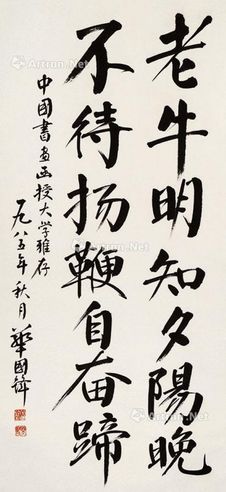 老牛明知夕陽晚
不待扬鞭自奋蹄
中國書画函授大学雅存
一九八五年秋月 華國鋒
Artron.Net